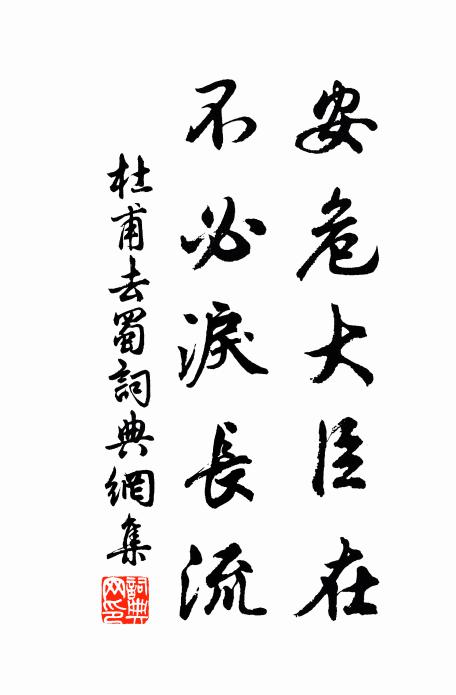 安危大臣在
不必淚長流
杜甫去蜀詞典網集
詞典
网印